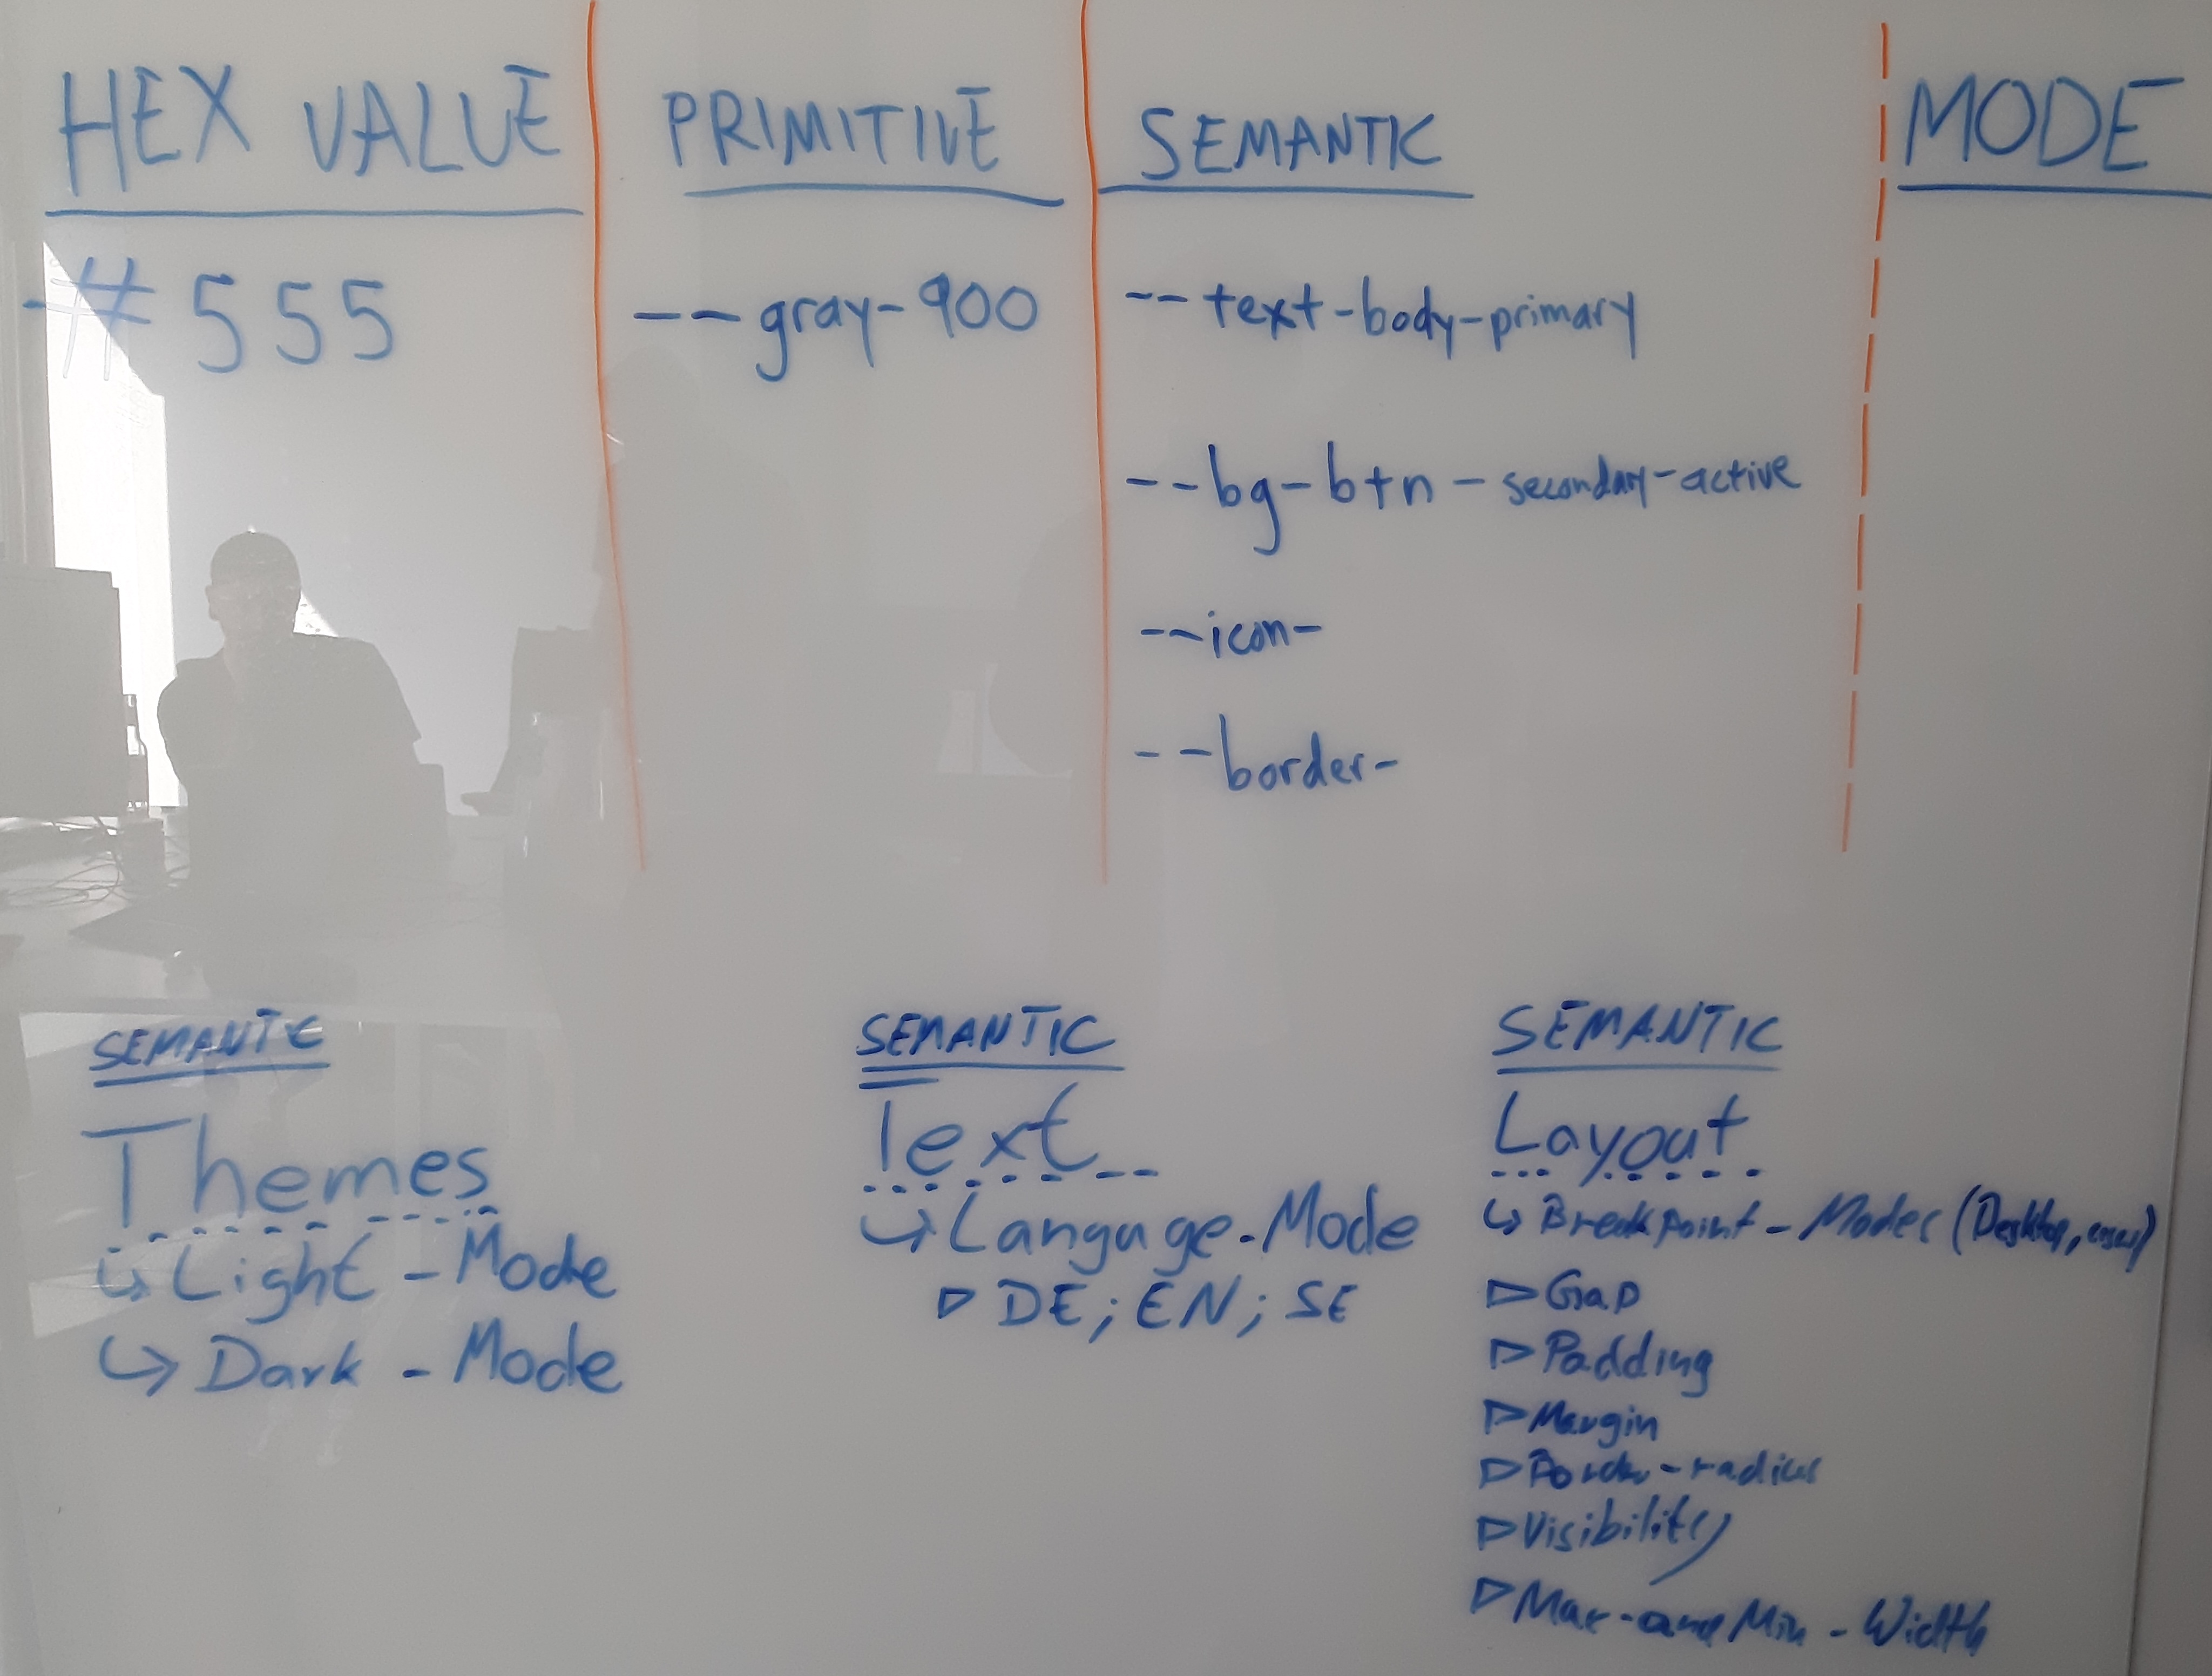 HEX VALUE
PRIMITIVE
SEMANTIC
MODE
#555
--gray-900
--text-body-primary
--bg-btn-secondary-active
--icon-
--border-
SEMANTIC
Themes
↳ Light-Mode
↳ Dark-Mode
SEMANTIC
Text
↳ Language-Mode
▷ DE; EN; SE
SEMANTIC
Layout
↳ Breakpoint-Modes (Desktop,
▷ Gap
▷ Padding
▷ Margin
▷ Border-radius
▷ Visibility
▷ Max-and Min-Width